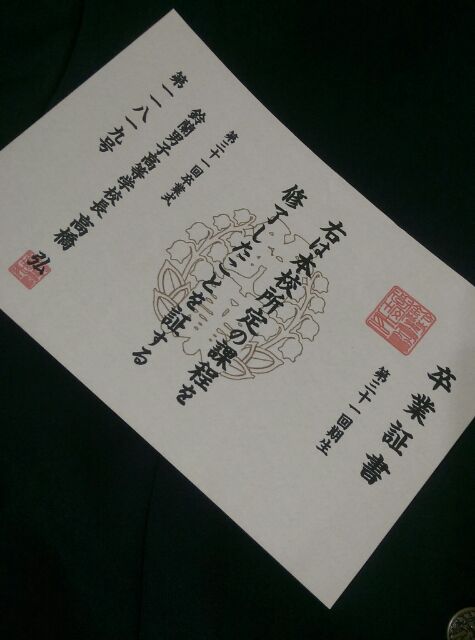 卒業証書
第三十一回期生
右は本校所定の課程を
修了したことを証する
第三十一回卒業式
鈴蘭男子高等学校長 高橋 弘
第一一八一九号